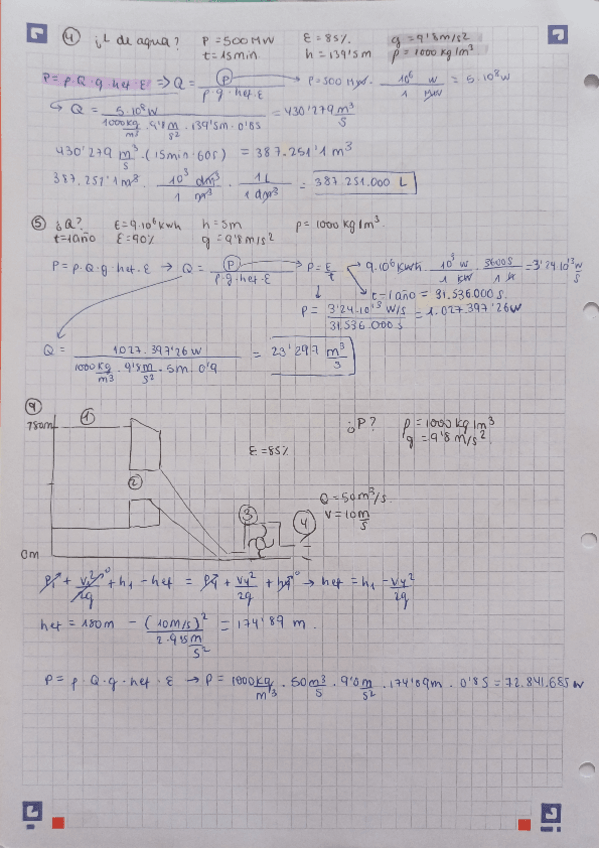 ④ ¿L de agua? P = 500 MW ε = 85% g = 9'8 m/s²
t = 15 min. h = 139'5 m ρ = 1000 kg/m³
P = ρ·Q·g·hef·ε ⇒ Q = P / ρ·g·hef·ε → P = 500 MW · 10⁶ W / 1 MW = 5·10⁸ W
↪ Q = 5·10⁸ W / 1000 kg/m³ · 9'8 m/s² · 139'5 m · 0'85 = 430'279 m³/s
430'279 m³/s · (15 min · 60 s) = 387.251'1 m³
387.251'1 m³ · 10³ dm³ / 1 m³ · 1 L / 1 dm³ = 387.251.000 L
⑤ ¿Q? E = 9·10⁶ kWh h = 5m ρ = 1000 kg/m³
t = 1 año ε = 90% g = 9'8 m/s²
P = ρ·Q·g·hef·ε → Q = P / ρ·g·hef·ε → P = E/t → 9·10⁶ kWh · 10³ W / 1 kW · 3600 s / 1 h = 3'24·10¹³ W/s
t = 1 año = 31.536.000 s.
P = 3'24·10¹³ W/s / 31.536.000 s = 1.027.397'26 W
Q = 1027.397'26 W / 1000 kg/m³ · 9'8 m/s² · 5m · 0'9 = 23'297 m³/s
⑨
780m ① ¿P? ρ = 1000 kg/m³
g = 9'8 m/s²
ε = 85%
②
Q = 50 m³/s.
③ ④ v = 10 m/s
0m
P₁ + V₁²/2g ⁰ + h₁ - hef = P₄ + V₄²/2g + h₄⁰ → hef = h₁ - V₄²/2g
hef = 180m - (10 m/s)² / 2·9'8 m/s² = 174'89 m.
P = ρ·Q·g·hef·ε → P = 1000 kg/m³ · 50 m³/s · 9'8 m/s² · 174'89 m · 0'85 = 72.841.685 W